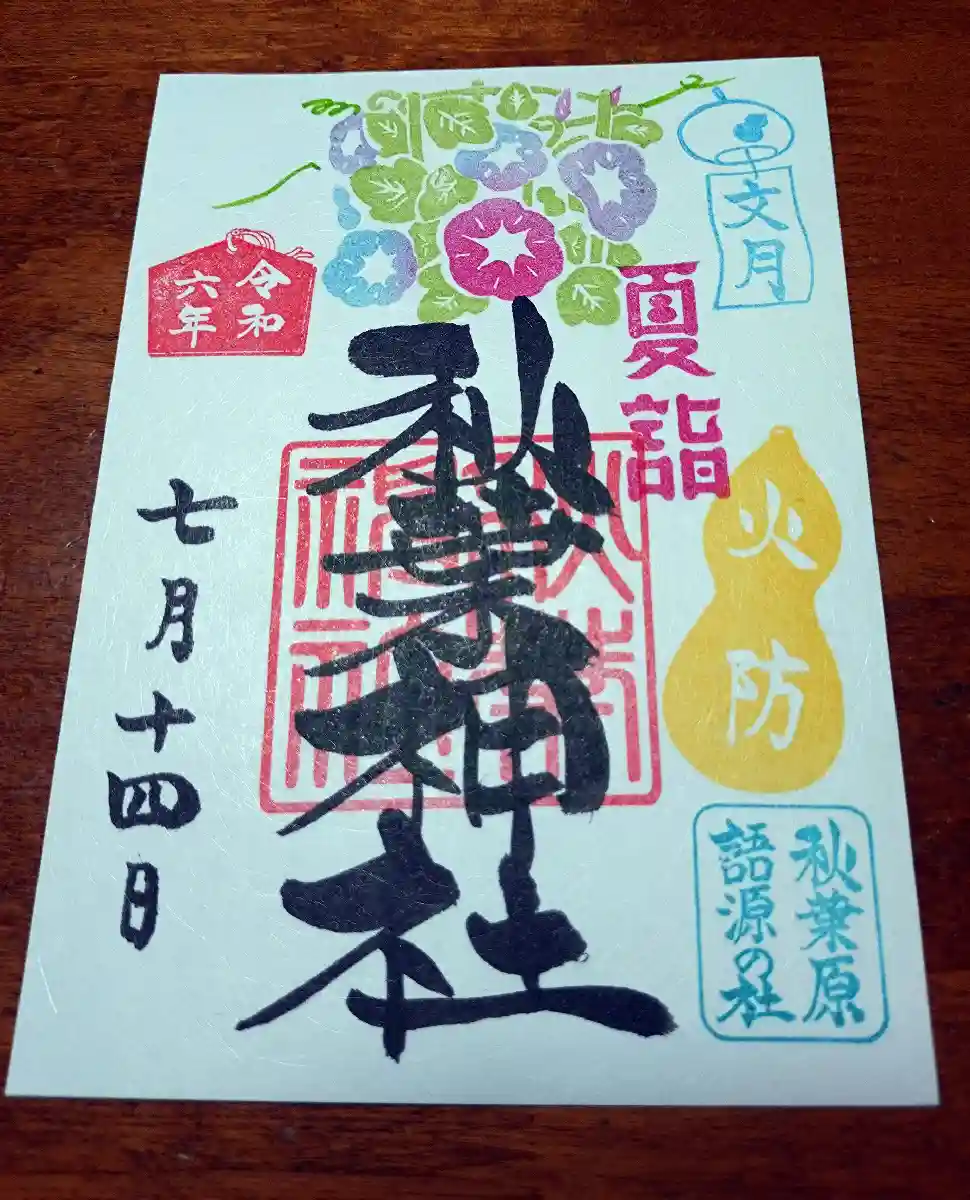 文月
夏詣
火防
秋葉原
語源の社
秋葉神社
秋葉
神社
令和
六年
七月十四日